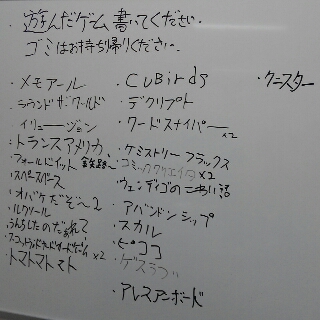 遊んだゲーム書いてください。
ゴミはお持ち帰りください。
・メモアール
・ラウンド ザ ワールド
・イリュージョン
・トランスアメリカ
・フォールドイット
・スペースベース
・オバケだぞ〜2
・ルクソール
・うんちしたのだあれ?
・スコットランドヤード
・トマトマトマト x2
・CuBirds
・デクリプト
・ワードスナイパー x2
・ケミストリーフラックス
・コミッククリエイター x2
・ウェンディゴのこわい話
・アバンドンシップ
・スカル
・ピココ
・ゲスラブ
・アレスアンボード
・クニスター